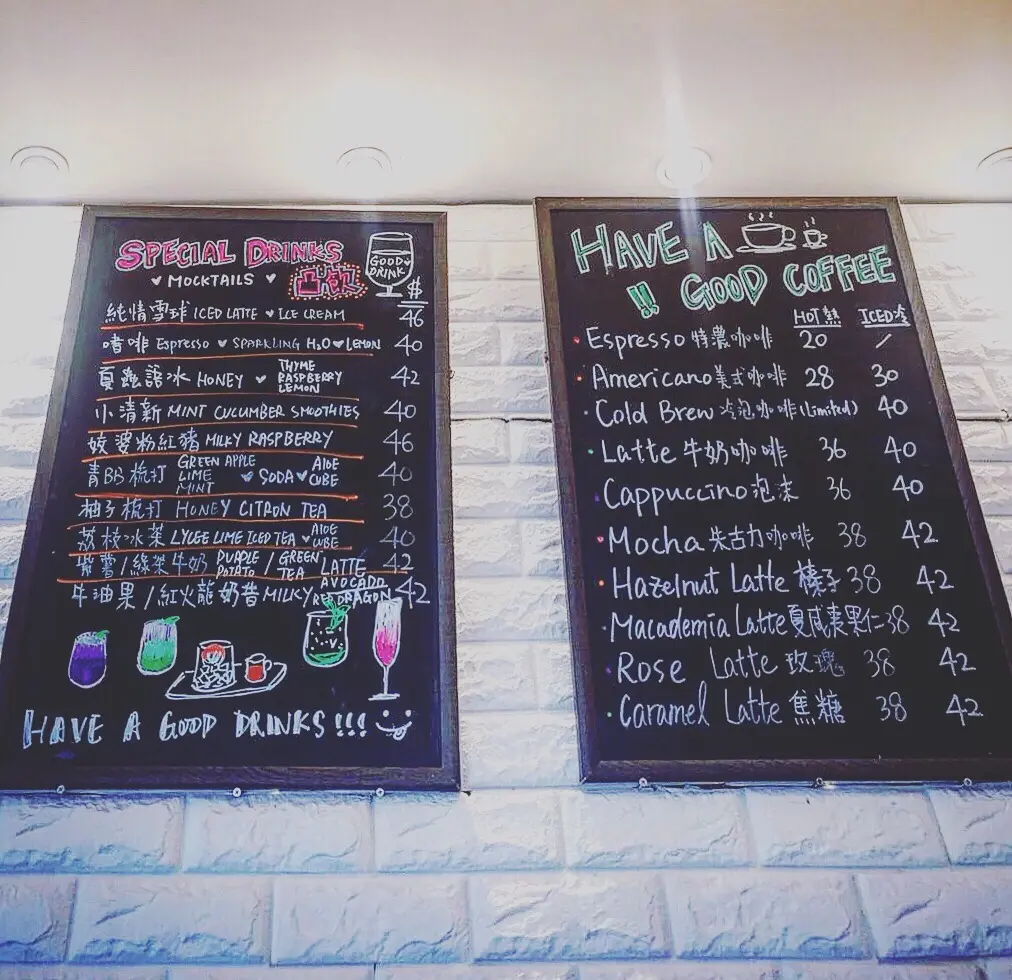 SPECIAL DRINKS
GOOD DRINK
MOCKTAILS
凸飲
$
純情雪球 ICED LATTE ♥ ICE CREAM 46
啫啡 Espresso ♥ SPARKLING H₂O ♥ LEMON 40
夏蟲語冰 HONEY ♥ THYME RASPBERRY LEMON 42
小清新 MINT CUCUMBER SMOOTHIES 40
姣婆粉紅豬 MILKY RASPBERRY 46
青BB梳打 GREEN APPLE LIME MINT ♥ SODA ♥ AlOE CUBE 40
柚子梳打 HONEY CITRON TEA 38
荔枝冰茶 LYCEE LIME ICED TEA ♥ AlOE CUBE 40
紫薯/綠茶牛奶 PURPLE POTATO / GREEN TEA LATTE 42
牛油果/紅火龍奶昔 MILKY AVOCADO RED DRAGON 42
HAVE A GOOD DRINKS!!!
HAVE A
!! GOOD COFFEE
HOT熱 ICED冷
Espresso 特濃咖啡 20 /
Americano 美式咖啡 28 30
Cold Brew 冷泡咖啡 (Limited) 40
Latte 牛奶咖啡 36 40
Cappuccino 泡沫 36 40
Mocha 朱古力咖啡 38 42
Hazelnut Latte 榛子 38 42
Macademia Latte 夏威夷果仁 38 42
Rose Latte 玫瑰 38 42
Caramel Latte 焦糖 38 42